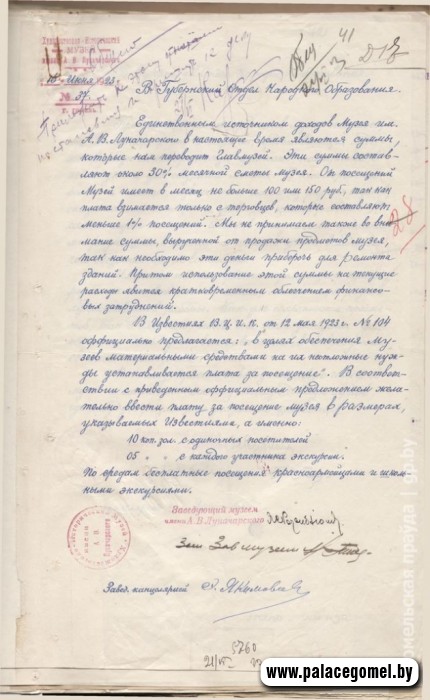 Июня 1923
№ 37
41
В Губернский Отдел Народного Образования.
Единственным источником доходов Музея им.
А.В. Луначарского в настоящее время являются суммы,
которые нам переводит Главмузей. Эти суммы состав-
ляют около 30% месячной сметы Музея. От посещений
Музей имеет в месяц не больше 100 или 150 руб, так как
плата взимается только с торговцев, которые составляют
меньше 1% посещений. Мы не принимаем также во вни-
мание суммы, вырученной от продажи предметов музея,
28
так как необходимо эти деньги приберечь для ремонта
зданий. Притом использование этой суммы на текущие
расходы явится кратковременным облегчением финансо-
вых затруднений.
В Известиях В.Ц.И.К. от 12 мая 1923 г. № 104
оффициально предлагается: „в целях обеспечения Му-
зеев материальными средствами на их неотложные нуж-
ды устанавливается плата за посещение". В соответ-
ствии с приведенным оффициальным предложением жела-
тельно ввести плату за посещение музея в размерах,
указываемых Известиями, а именно:
10 коп. зол. с одиночных посетителей
05 „ „ с каждого участника экскурсии.
По средам бесплатные посещения красноармейцами и школь-
ными экскурсиями.
Заведующий музеем
имени А.В. Луначарского
Зам Зав музеем
Завед. канцелярией
5760
21/VI
гомельская прауда | gp.by
www.palacegomel.by